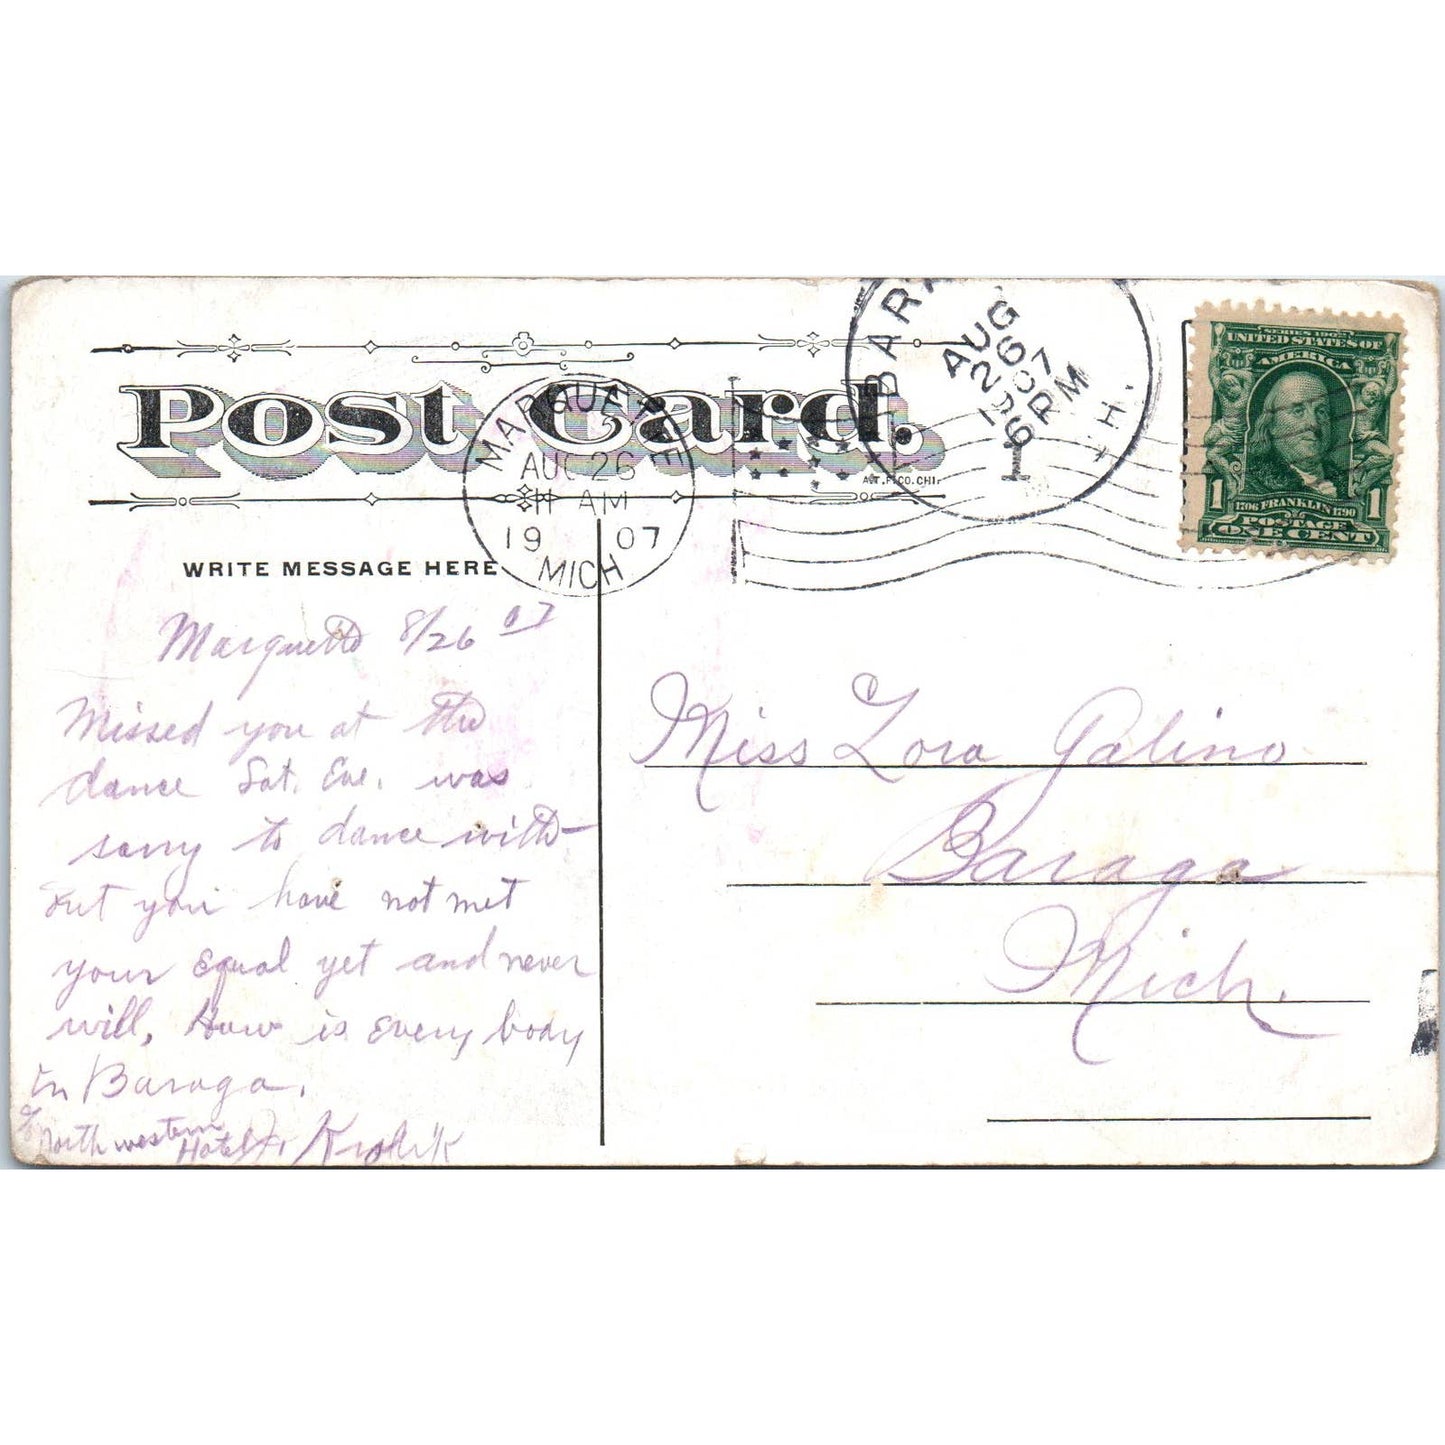 Post Card.
A.T.F.CO.CHI.
WRITE MESSAGE HERE
MARQUETTE
AUG 26
11 AM
1907
MICH.
BAR
AUG
26
1907
6 PM
H.
1
SERIES 1902
UNITED STATES OF
AMERICA
1 1
1706 FRANKLIN 1790
POSTAGE
ONE CENT
Marquette 8/26 07
Missed you at the
dance Sat. Eve. was
sorry to dance with-
out you have not met
your equal yet and never
will, How is Every body
in Baraga.
c/o Northwestern
Hotel
Miss Lora Galino
Baraga
Mich.